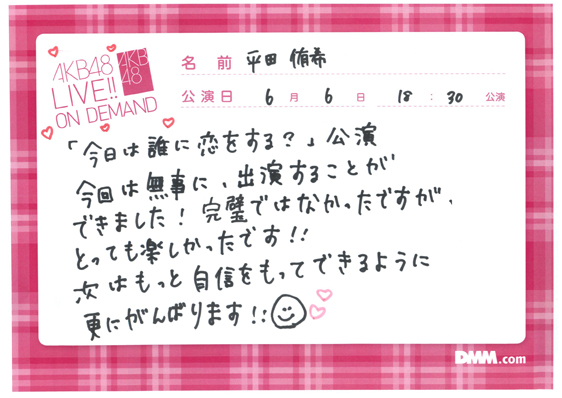 AKB48
LIVE!!
ON DEMAND
AKB
48
名前 平田 侑希
公演日 6月 6日 18:30 公演
「今日は誰に恋をする？」公演
今回は無事に、出演することが
できました！完璧ではなかったですが、
とっても楽しかったです!!
次はもっと自信をもってできるように
更にがんばります!!
DMM.com